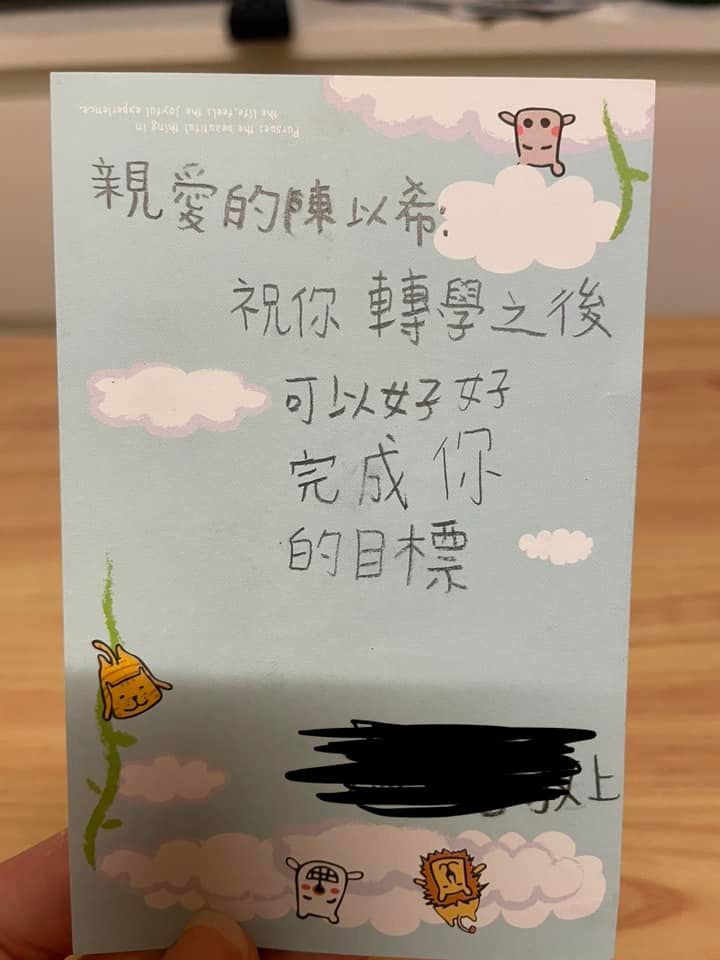 Pursues the beautiful thing in
the life,feels the joyful experience.
親愛的陳以希:
祝你轉學之後
可以好好
完成你
的目標
敬上